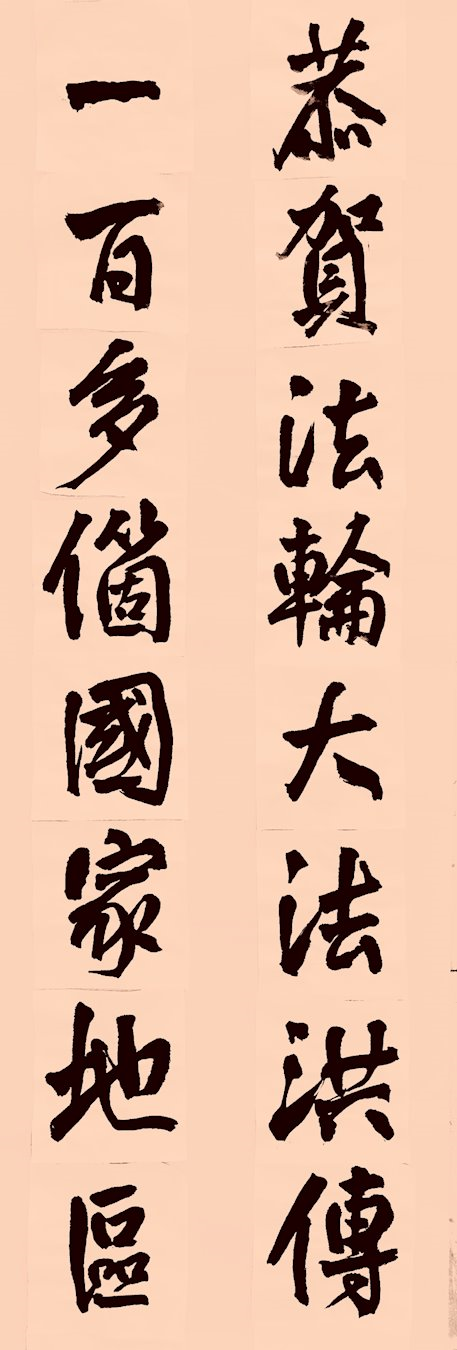 恭賀法輪大法洪傳
一百多箇國家地區